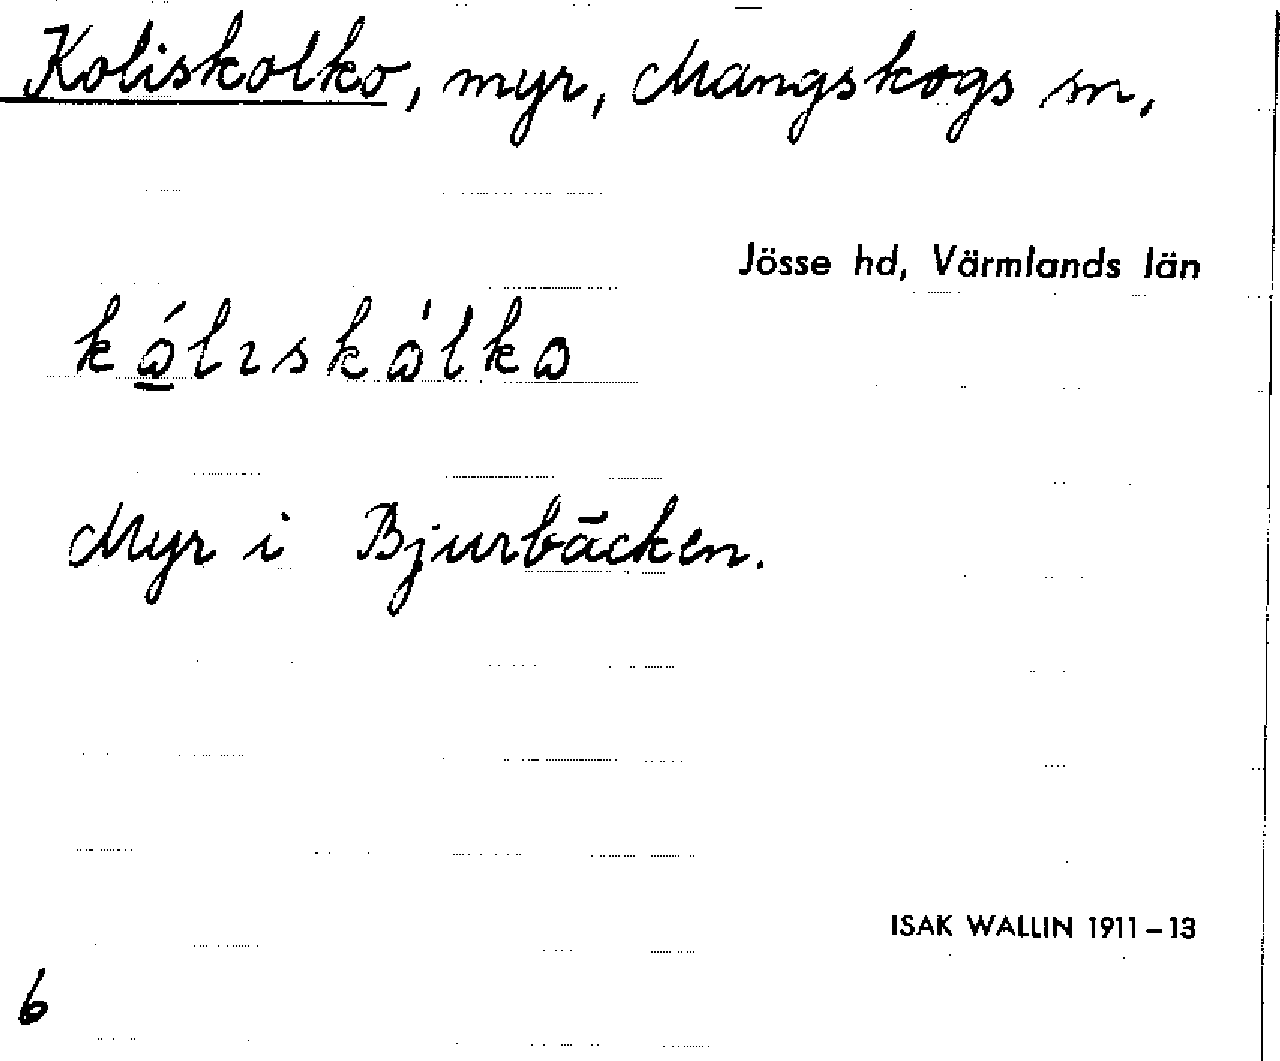 Koliskolko, myr, Mangskogs sn,
Jösse hd, Värmlands län
kó̱lɪskòlko
Myr i Bjurbäcken.
ISAK WALLIN 1911–13
6